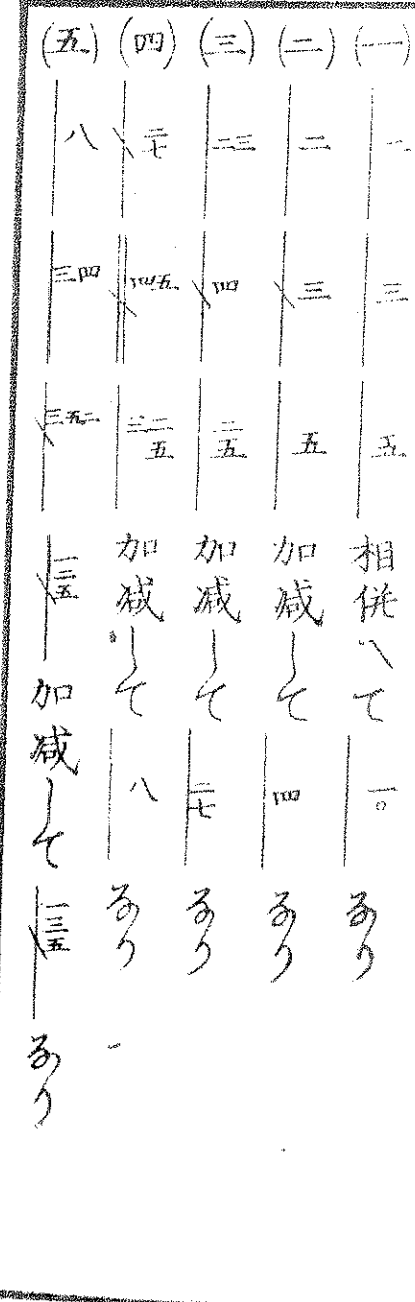 (一) 三 五 相併へて 一〇 なり
(二) 二 三 五 加減して 四 なり
(三) 二三 四 二五 加減して 二七 なり
(四) 二七 四五 二五 加減して 八 なり
(五) 八 三四 三五二 一二五 加減して 一三五 なり